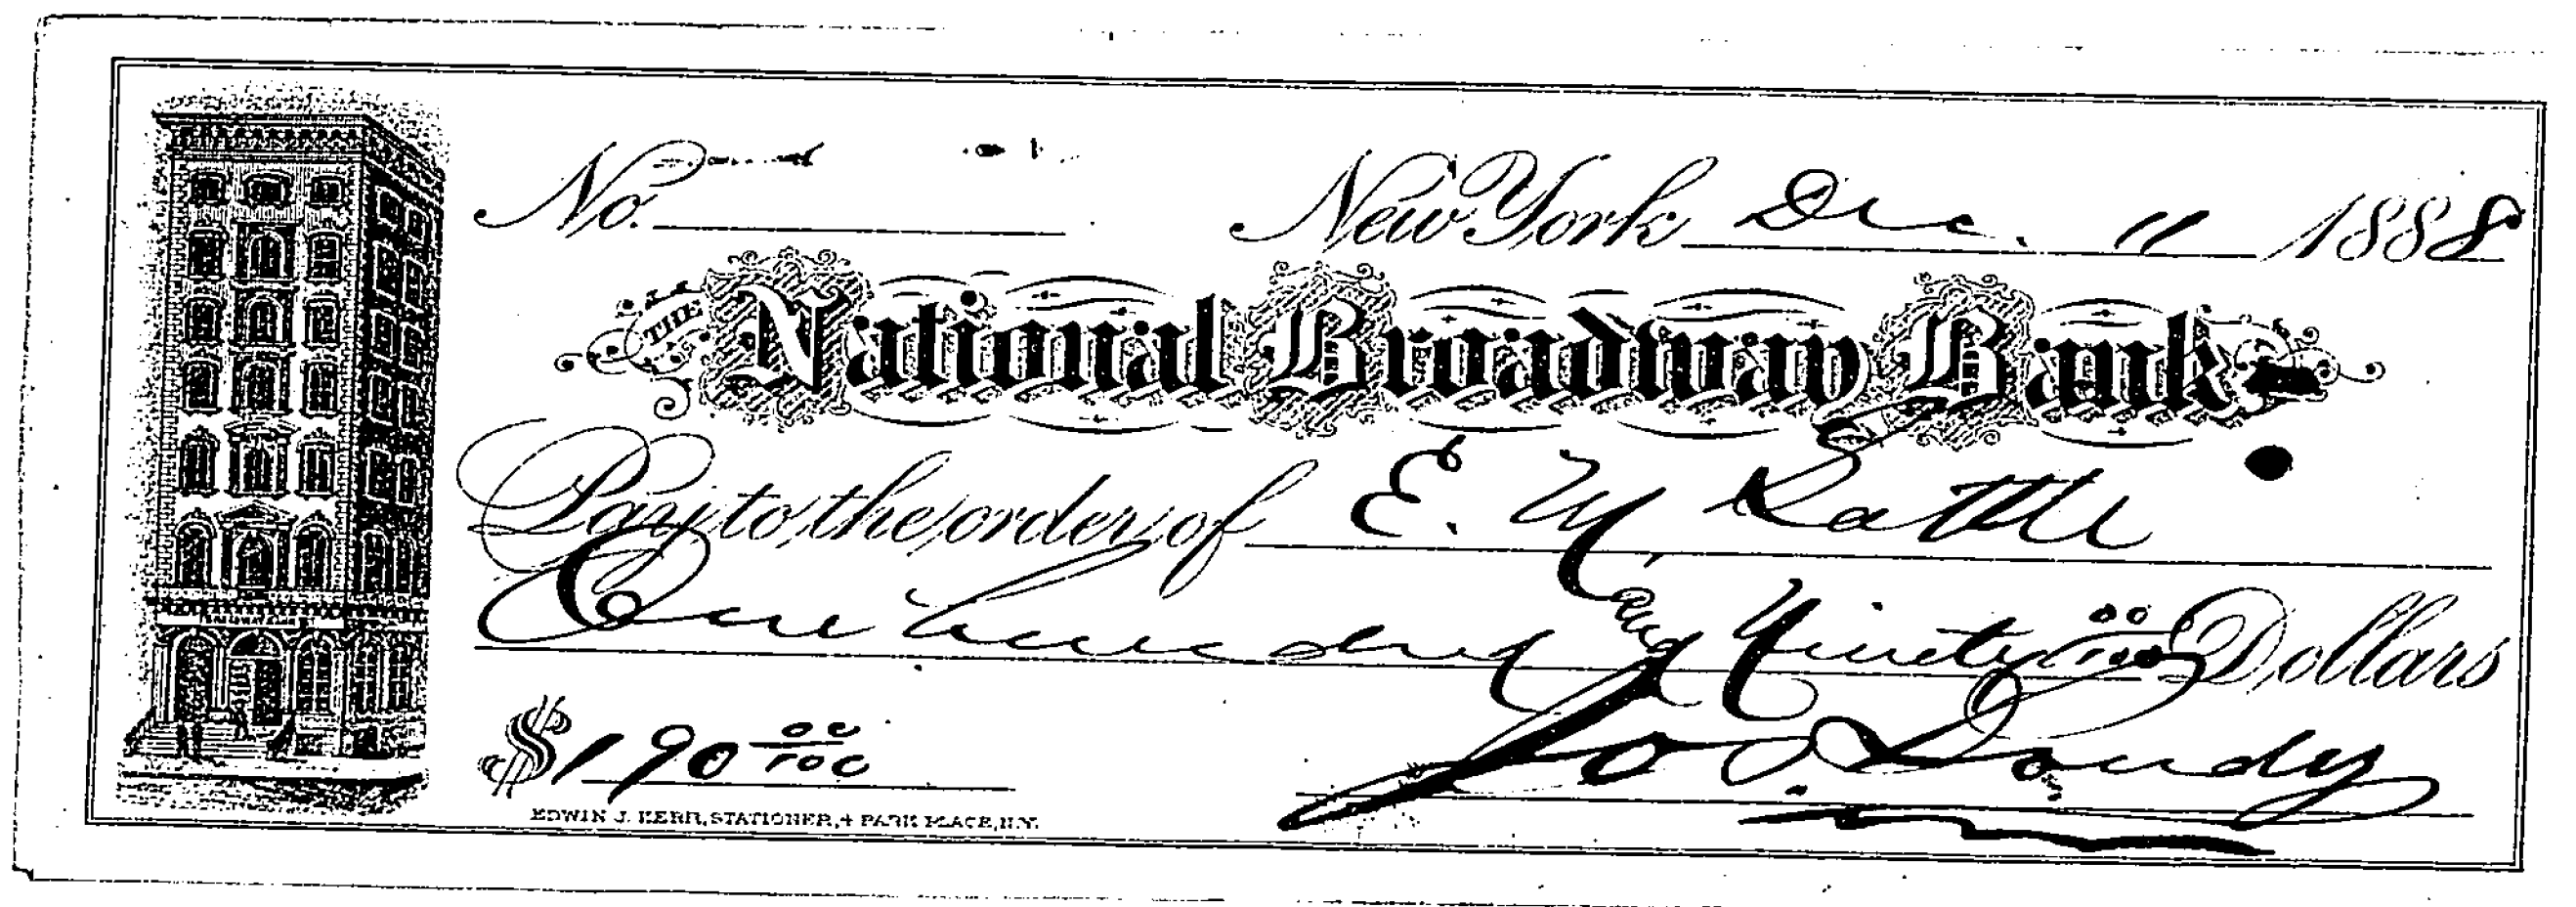 No. New York Dec. 11 1888
THE National Broadway Bank
Pay to the order of E. M
One hundred and Ninety 00/100 Dollars
$190 00/100
EDWIN J. KERR, STATIONER, 4 PARK PLACE, N.Y.